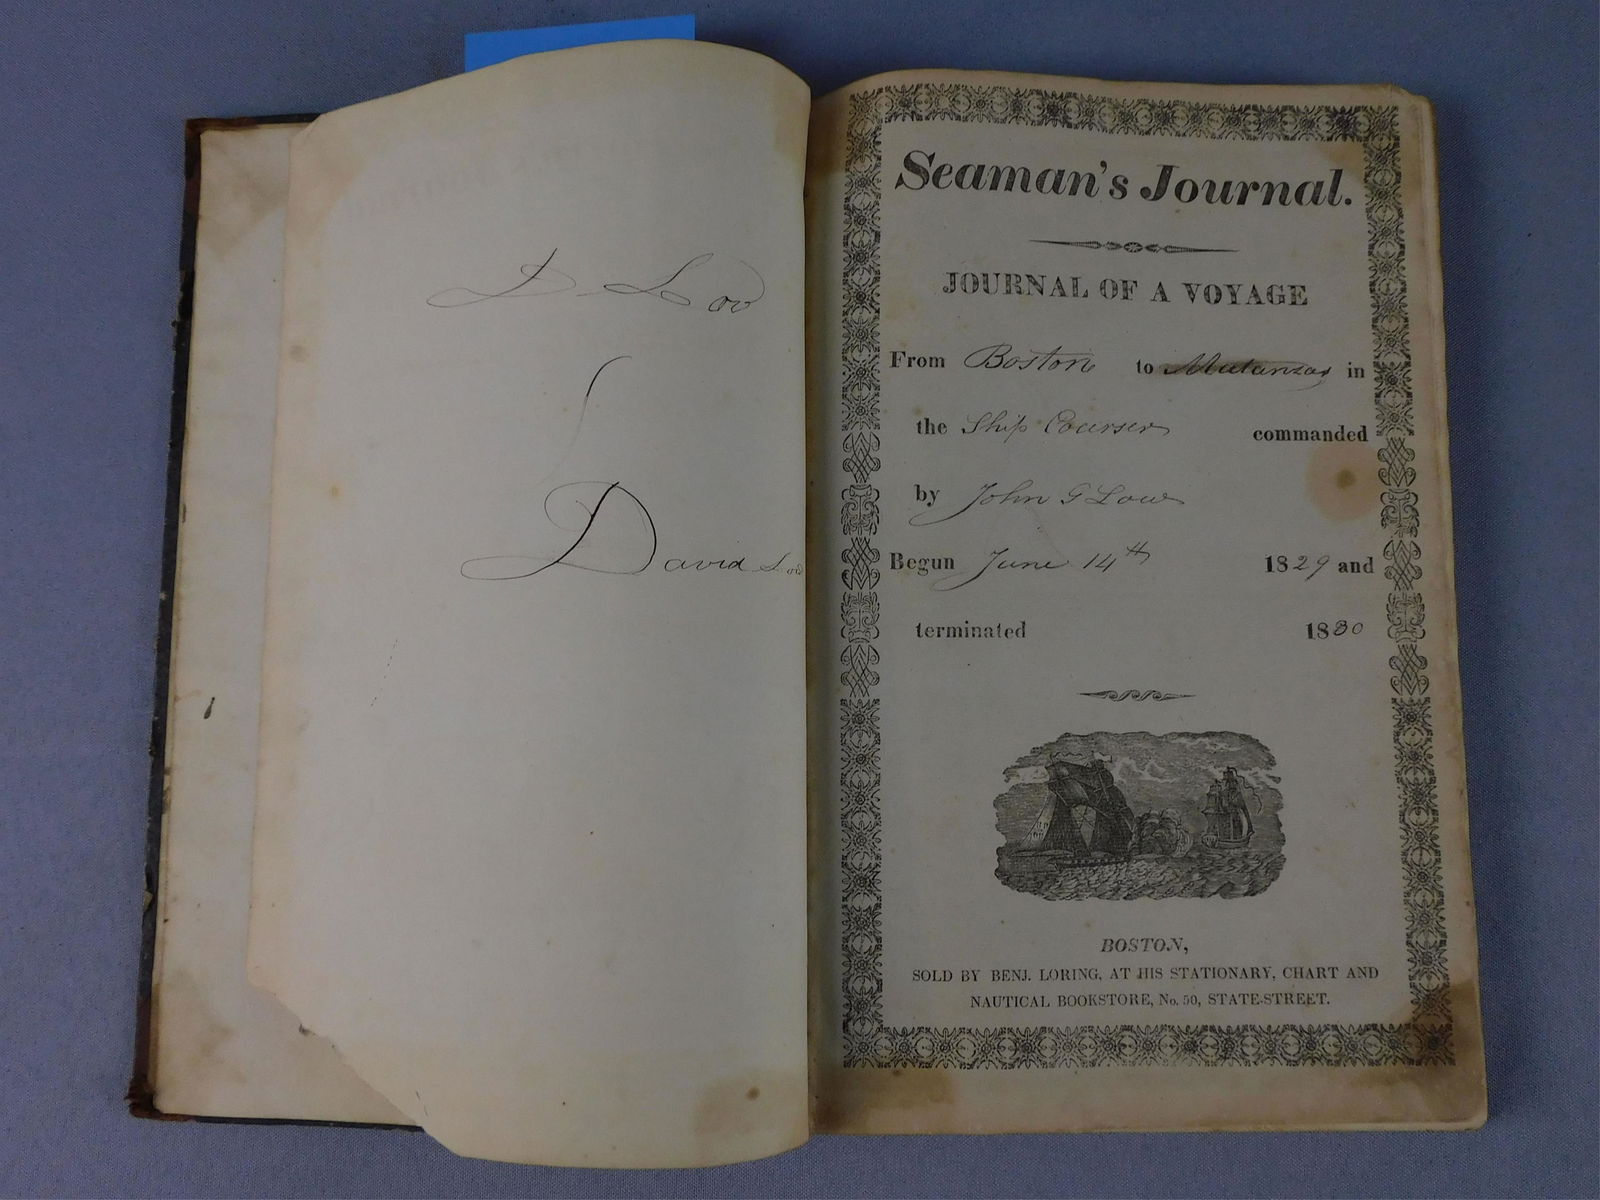 D Low
David Low
Seaman's Journal.
JOURNAL OF A VOYAGE
From Boston to Matanzas in
the Ship Courser commanded
by John G Low
Begun June 14th 1829 and
terminated 1830
BOSTON,
SOLD BY BENJ. LORING, AT HIS STATIONARY, CHART AND
NAUTICAL BOOKSTORE, No. 50, STATE-STREET.